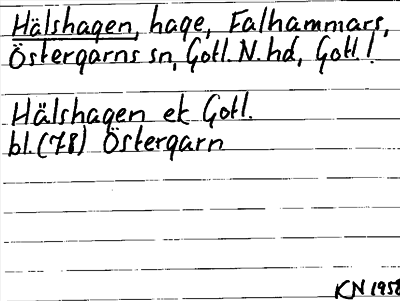 Hälshagen, hage, Falhammars,
Östergarns sn, Gotl. N. hd, Gotl. l
Hälshagen ek Gotl.
bl. (78) Östergarn
KN 1958